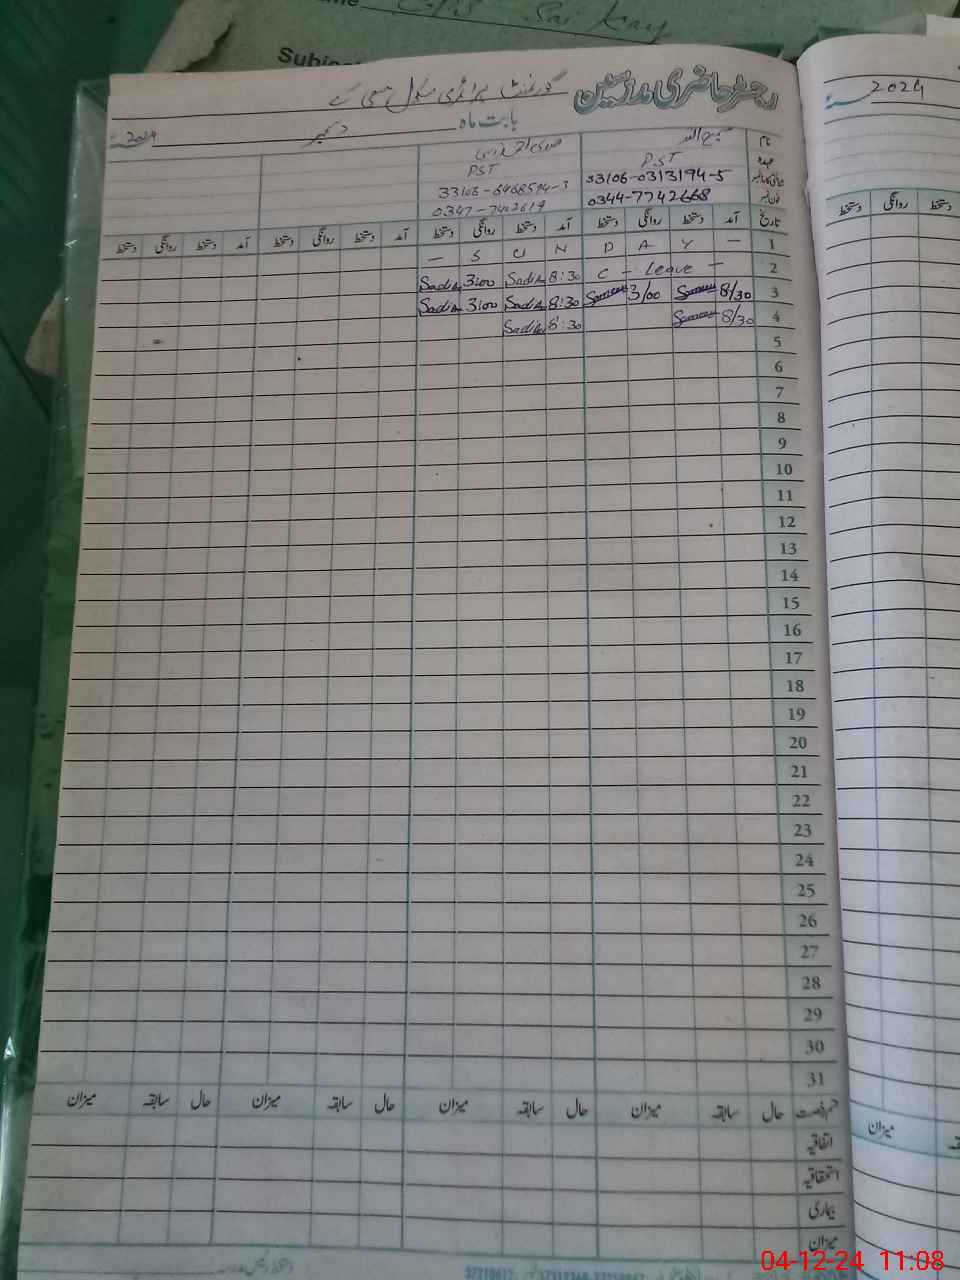 Subject
رجسٹر حاضری مدرسین گورنمنٹ پرائمری سکول
بابت ماہ دسمبر 2024ء
نام سمیع اللہ
عہدہ PST PST
33106-0313194-5 33106-6468594-3
فون نمبر 0344-7742668 0347-7412619
تاریخ آمد دستخط روانگی دستخط آمد دستخط روانگی دستخط آمد دستخط روانگی دستخط آمد دستخط روانگی دستخط
— S U N D A Y — 1
C - Leave - 2
Sadia 3:00 Sadia 8:30
Sadia 3:00 Sadia 8:30 3/00 8/30 3
Sadia 8:30 8/30 4
5
6
7
8
9
10
11
12
13
14
15
16
17
18
19
20
21
22
23
24
25
26
27
28
29
30
31
قسم رخصت حال سابقہ میزان حال سابقہ میزان حال سابقہ میزان حال سابقہ میزان
اتفاقیہ
استحقاقیہ
بیماری
میزان
2024
دستخط روانگی دستخط
میزان
04-12-24 11:08